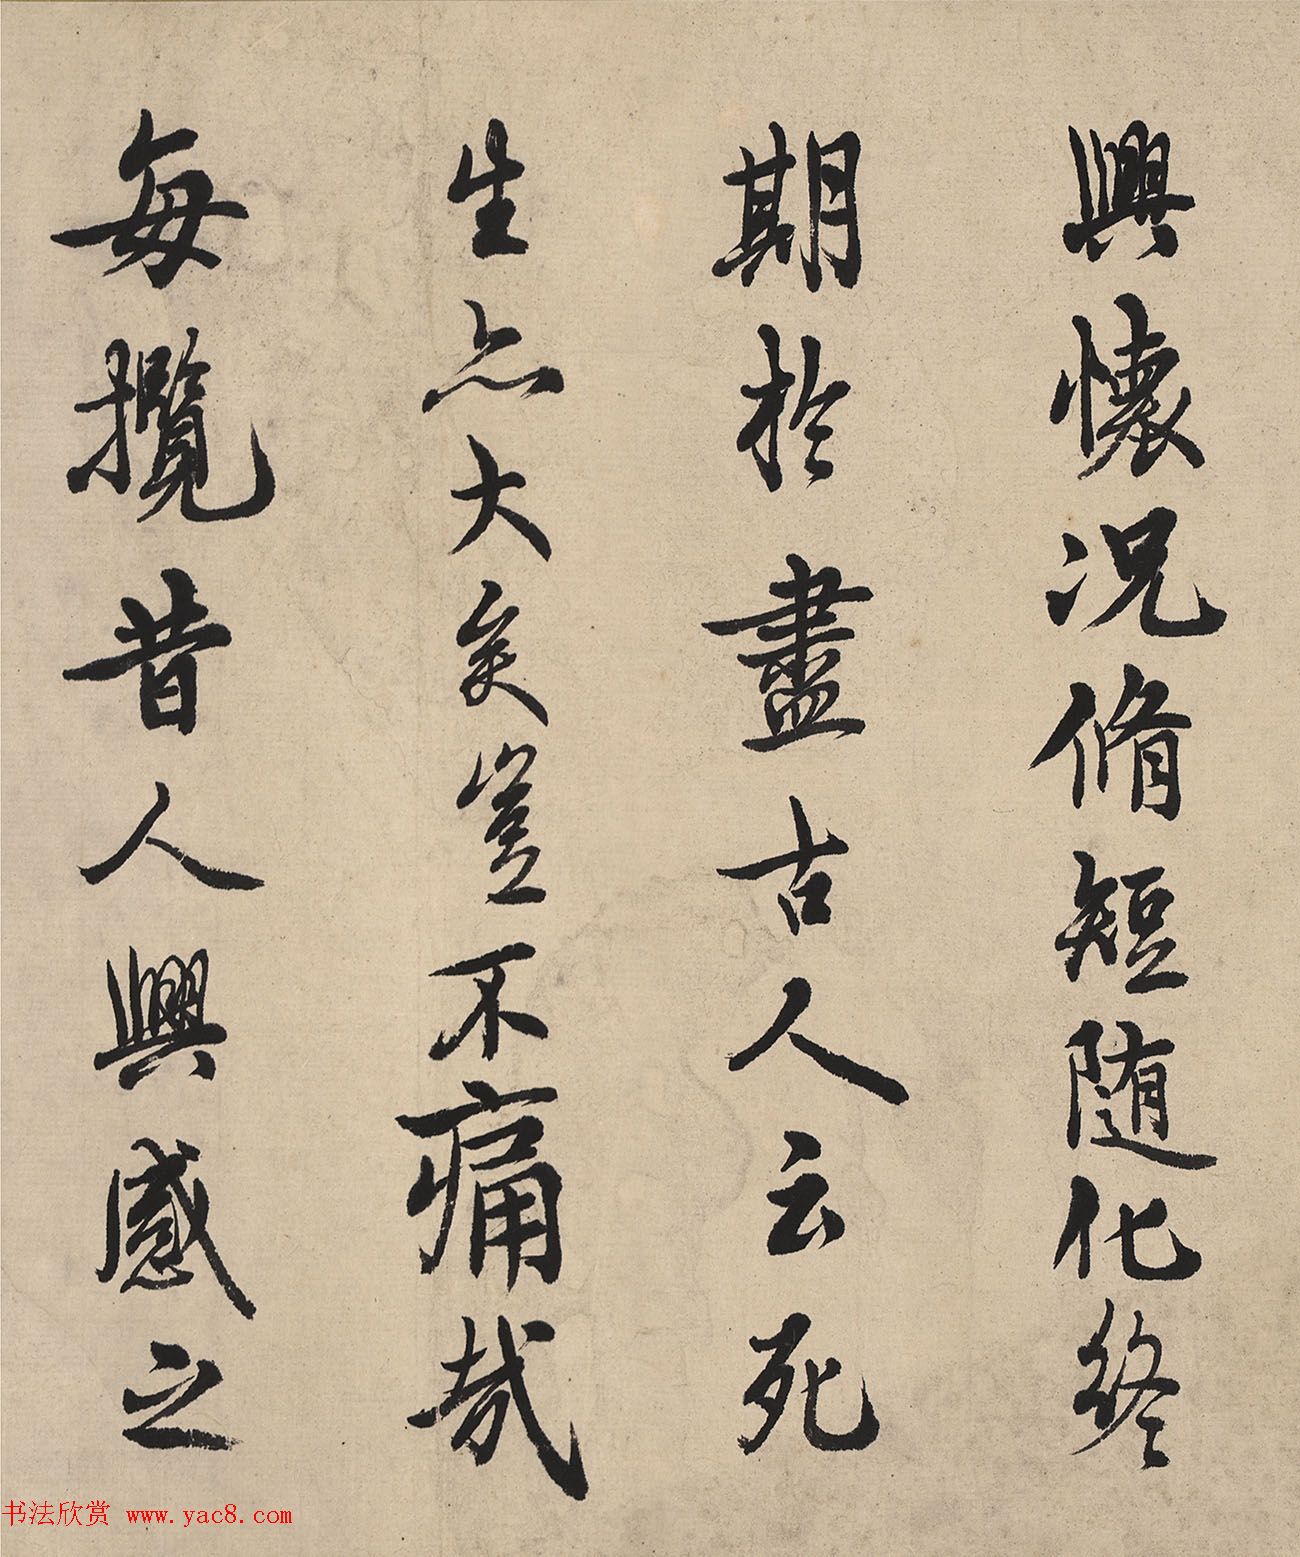 興懷况脩短随化終
期於盡古人云死
生亦大矣豈不痛哉
每攬昔人興感之
书法欣赏 www.yac8.com